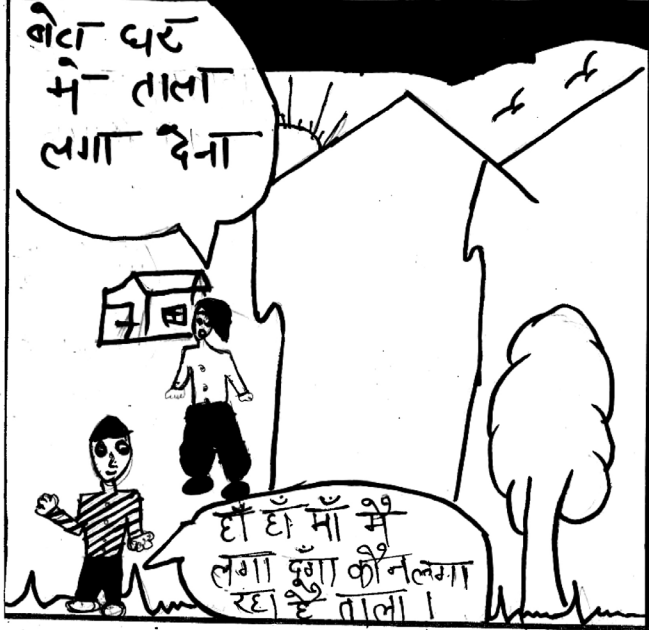 बेटा घर
मे ताला
लगा देना
हाँ हाँ माँ मैं
लगा दूँगा कौन लगा
रहा है ताला।